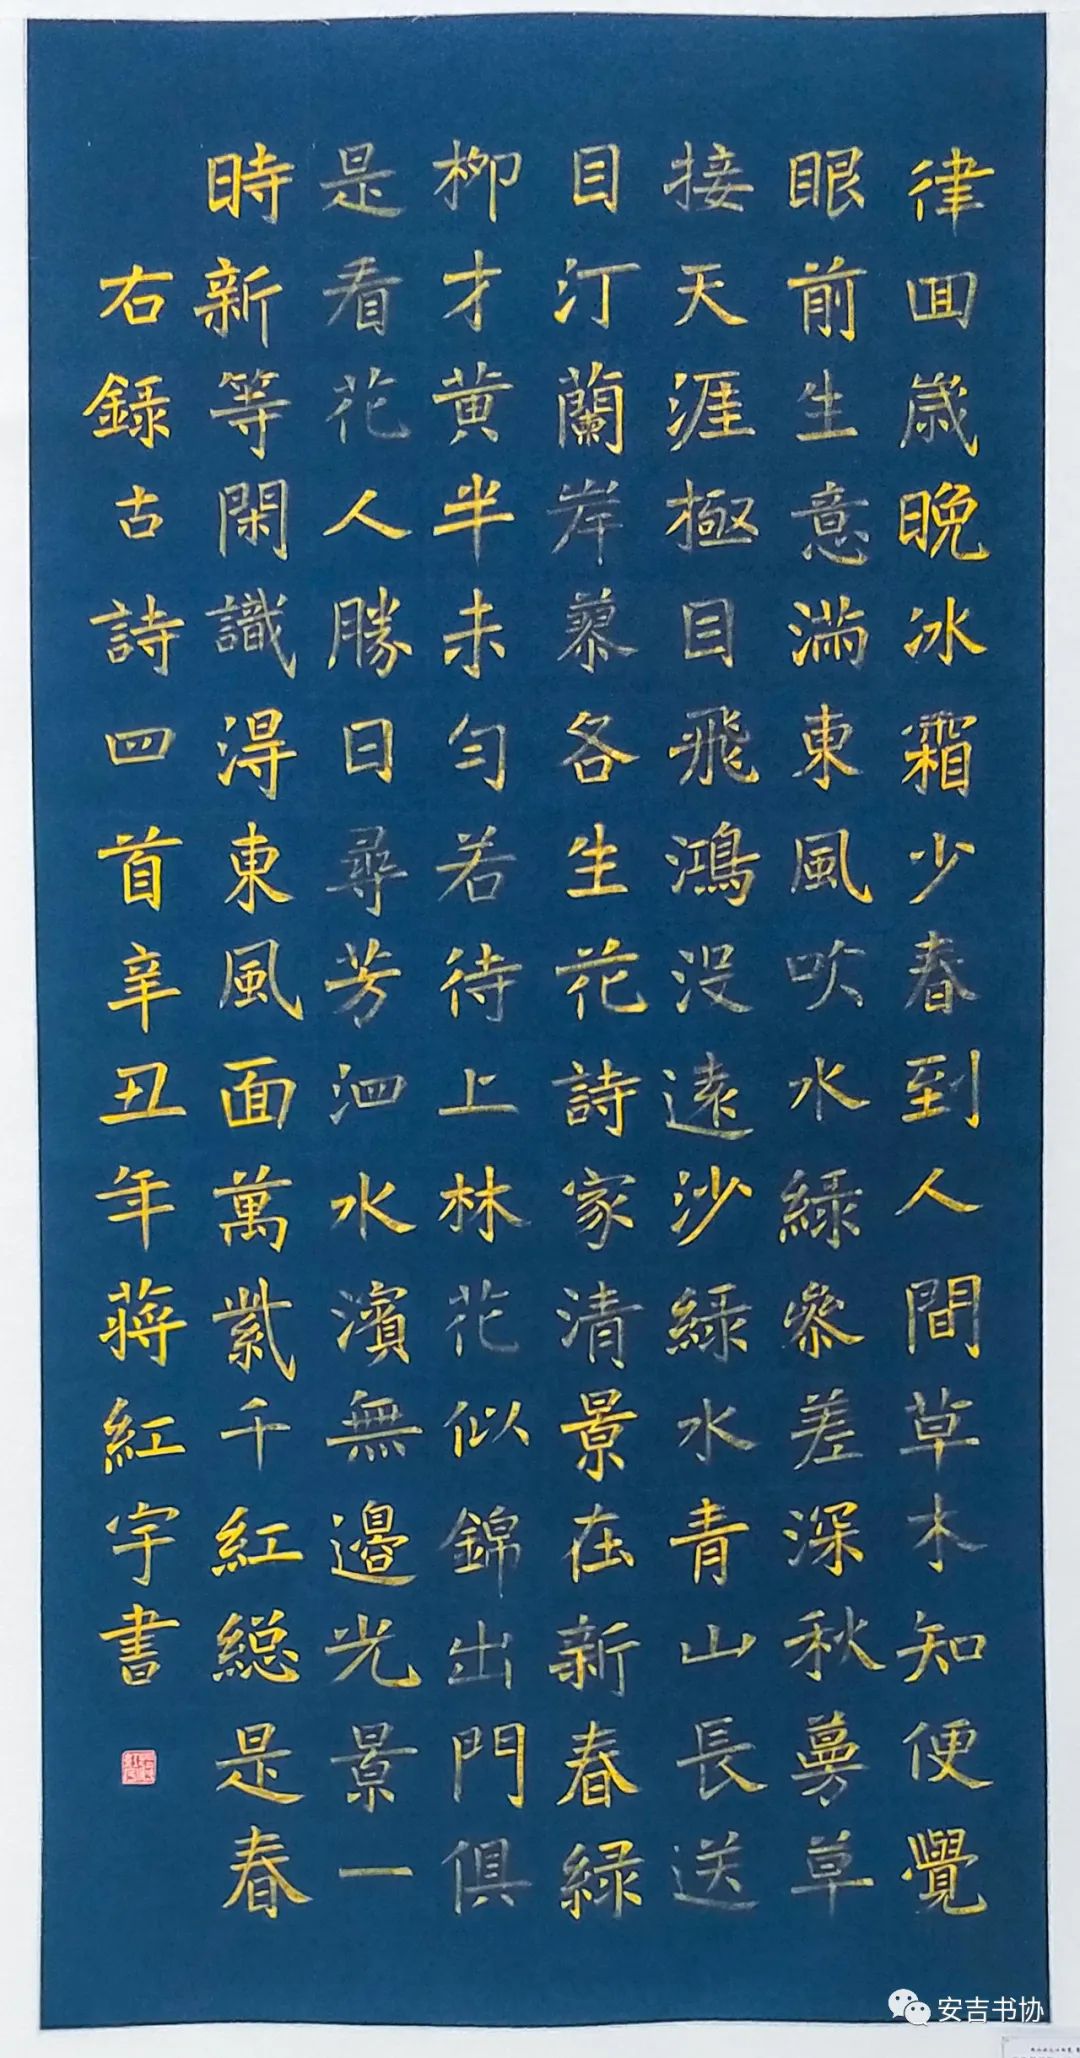 律囬歲晚冰霜少春到人間草木知便覺
眼前生意滿東風吹水綠參差深秋蔓草
接天涯極目飛鴻沒遠沙綠水青山長送
目汀蘭岸蓼各生花詩家清景在新春綠
柳才黃半未勻若待上林花似錦出門俱
是看花人勝日尋芳泗水濱無邊光景一
時新等閑識得東風面萬紫千紅總是春
右錄古詩四首辛丑年蔣紅宇書
安吉书协